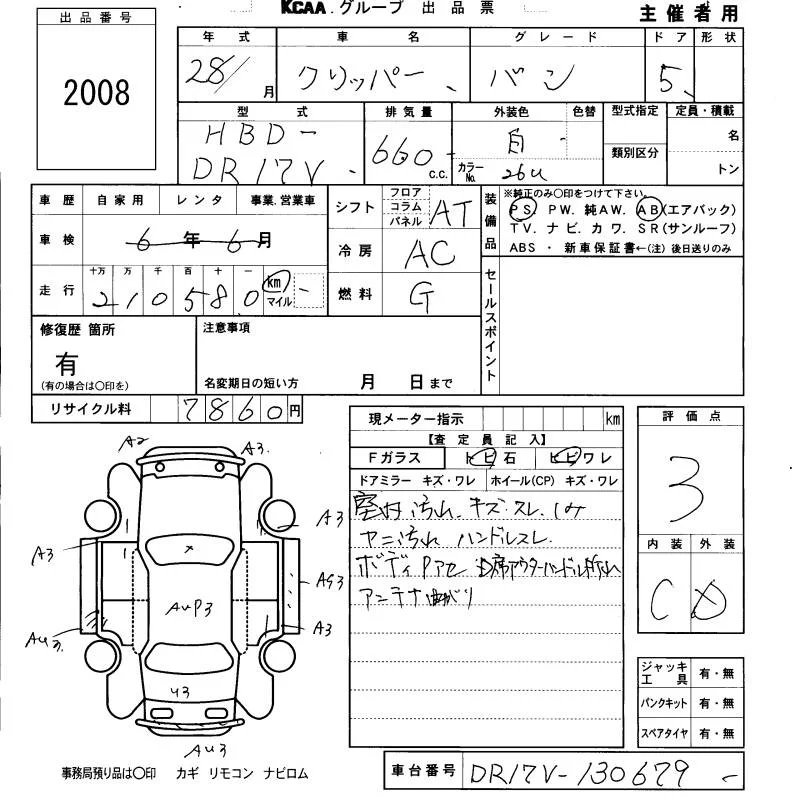 KCAA. グループ 出品票
主催者用
出品番号
2008
年式 車名 グレード ドア 形状
28/ 月 クリッパー バン 5
型式 排気量 外装色 色替 型式指定 定員・積載
HBD-
DR17V 660 c.c. 白 カラーNo. 26U 類別区分 名
トン
車歴 自家用 レンタ 事業.営業車
車検 6年6月
走行 十万 万 千 百 十 一
210580 km マイル
シフト フロア コラム パネル AT
冷房 AC
燃料 G
装備品 ※純正のみ〇印をつけて下さい。
PS. PW. 純AW. AB(エアバック)
TV. ナビ. カワ. SR(サンルーフ)
ABS ・ 新車保証書←(注) 後日送りのみ
セールスポイント
修復歴 箇所
有
(有の場合は〇印を)
注意事項
名変期日の短い方 月 日まで
リサイクル料 7860円
現メーター指示 km
【査定員記入】
Fガラス トビ石 ヒビワレ
ドアミラー キズ・ワレ ホイール(CP) キズ・ワレ
室内汚れ.キズ.スレ.シミ
ヤニ汚れ ハンドルスレ
ボディPアセ
アンテナ曲がり
評価点
3
内装 外装
C D
ジャッキ工具 有・無
パンクキット 有・無
スペアタイヤ 有・無
A2
A3.
A3
A3
AG3
AUP3
A3
AU3.
U3
AU3
事務局預り品は〇印 カギ リモコン ナビロム
車台番号 DR17V-130679